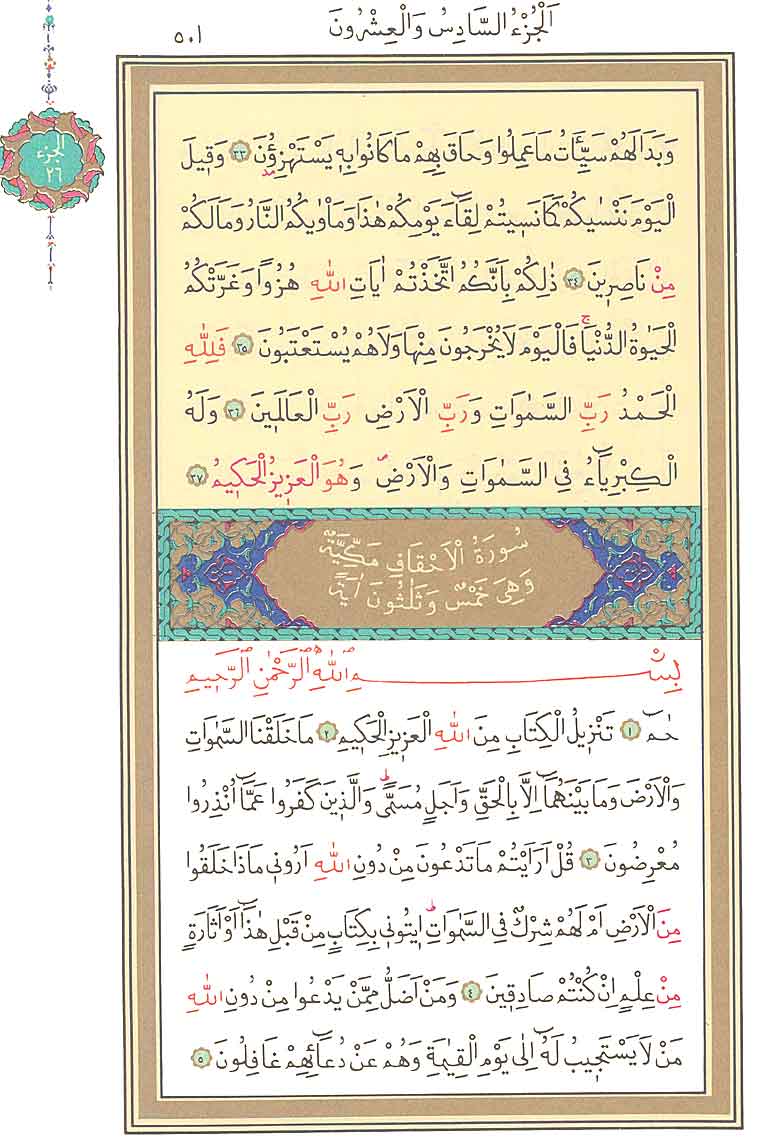 اَلْجُزْءُ السَّادِسُ وَالْعِشْرُونَ
٥٠١
الجزء
٢٦
وَبَدَا لَهُمْ سَيِّـَٔاتُ مَا عَمِلُوا وَحَاقَ بِهِمْ مَا كَانُوا بِهٖ يَسْتَهْزِؤُنَ ٣٣ وَقٖيلَ
الْيَوْمَ نَنْسٰيكُمْ كَمَا نَسٖيتُمْ لِقَٓاءَ يَوْمِكُمْ هٰذَا وَمَأْوٰيكُمُ النَّارُ وَمَا لَكُمْ
مِنْ نَاصِرٖينَ ٣٤ ذٰلِكُمْ بِاَنَّكُمُ اتَّخَذْتُمْ اٰيَاتِ اللّٰهِ هُزُوًا وَغَرَّتْكُمُ
الْحَيٰوةُ الدُّنْيَاۚ فَالْيَوْمَ لَا يُخْرَجُونَ مِنْهَا وَلَا هُمْ يُسْتَعْتَبُونَ ٣٥ فَلِلّٰهِ
الْحَمْدُ رَبِّ السَّمٰوَاتِ وَرَبِّ الْاَرْضِ رَبِّ الْعَالَمٖينَ ٣٦ وَلَهُ
الْكِبْرِيَٓاءُ فِى السَّمٰوَاتِ وَالْاَرْضِۖ وَهُوَ الْعَزٖيزُ الْحَكٖيمُ ٣٧
سُورَةُ الْاَحْقَافِ مَكِّيَّةٌ
وَهِىَ خَمْسٌ وَثَلٰثُونَ اٰيَةً
بِسْمِ اللّٰهِ الرَّحْمٰنِ الرَّحٖيمِ
حٰمٓ ١ تَنْزٖيلُ الْكِتَابِ مِنَ اللّٰهِ الْعَزٖيزِ الْحَكٖيمِ ٢ مَا خَلَقْنَا السَّمٰوَاتِ
وَالْاَرْضَ وَمَا بَيْنَهُمَٓا اِلَّا بِالْحَقِّ وَاَجَلٍ مُسَمًّىؕ وَالَّذٖينَ كَفَرُوا عَمَّٓا اُنْذِرُوا
مُعْرِضُونَ ٣ قُلْ اَرَاَيْتُمْ مَا تَدْعُونَ مِنْ دُونِ اللّٰهِ اَرُونٖى مَاذَا خَلَقُوا
مِنَ الْاَرْضِ اَمْ لَهُمْ شِرْكٌ فِى السَّمٰوَاتِؕ اٖيتُونٖى بِكِتَابٍ مِنْ قَبْلِ هٰذَٓا اَوْ اَثَارَةٍ
مِنْ عِلْمٍ اِنْ كُنْتُمْ صَادِقٖينَ ٤ وَمَنْ اَضَلُّ مِمَّنْ يَدْعُوا مِنْ دُونِ اللّٰهِ
مَنْ لَا يَسْتَجٖيبُ لَهُٓ اِلٰى يَوْمِ الْقِيٰمَةِ وَهُمْ عَنْ دُعَٓائِهِمْ غَافِلُونَ ٥